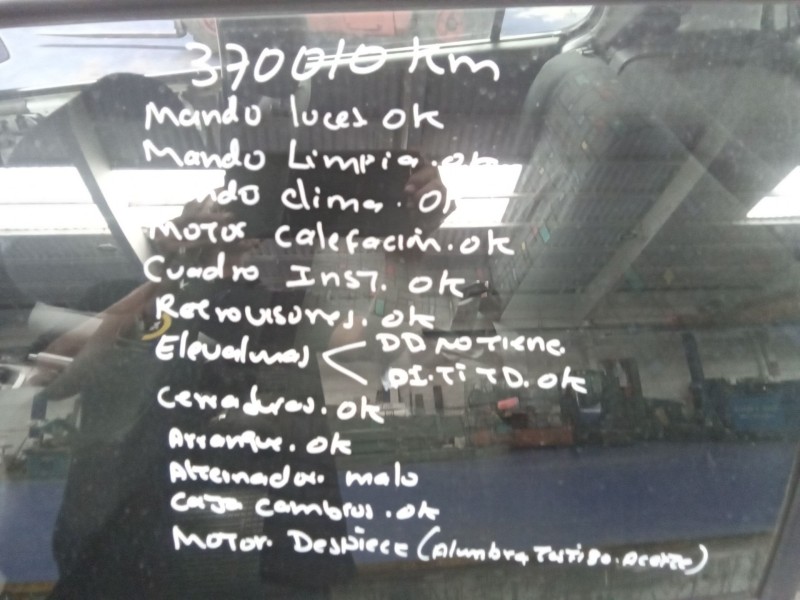 370010 km
Mando luces ok
Mando Limpia. ok
ndo clima. ok
Motor calefación. ok
Cuadro Inst. ok
Retrovisores. ok
Elevalunas < DD no tiene
DI. Ti TD. ok
Cerraduras. ok
Arranque. ok
Alternador malo
Caja cambios. ok
Motor Despiece (Alumbra Testigo. Aceite)